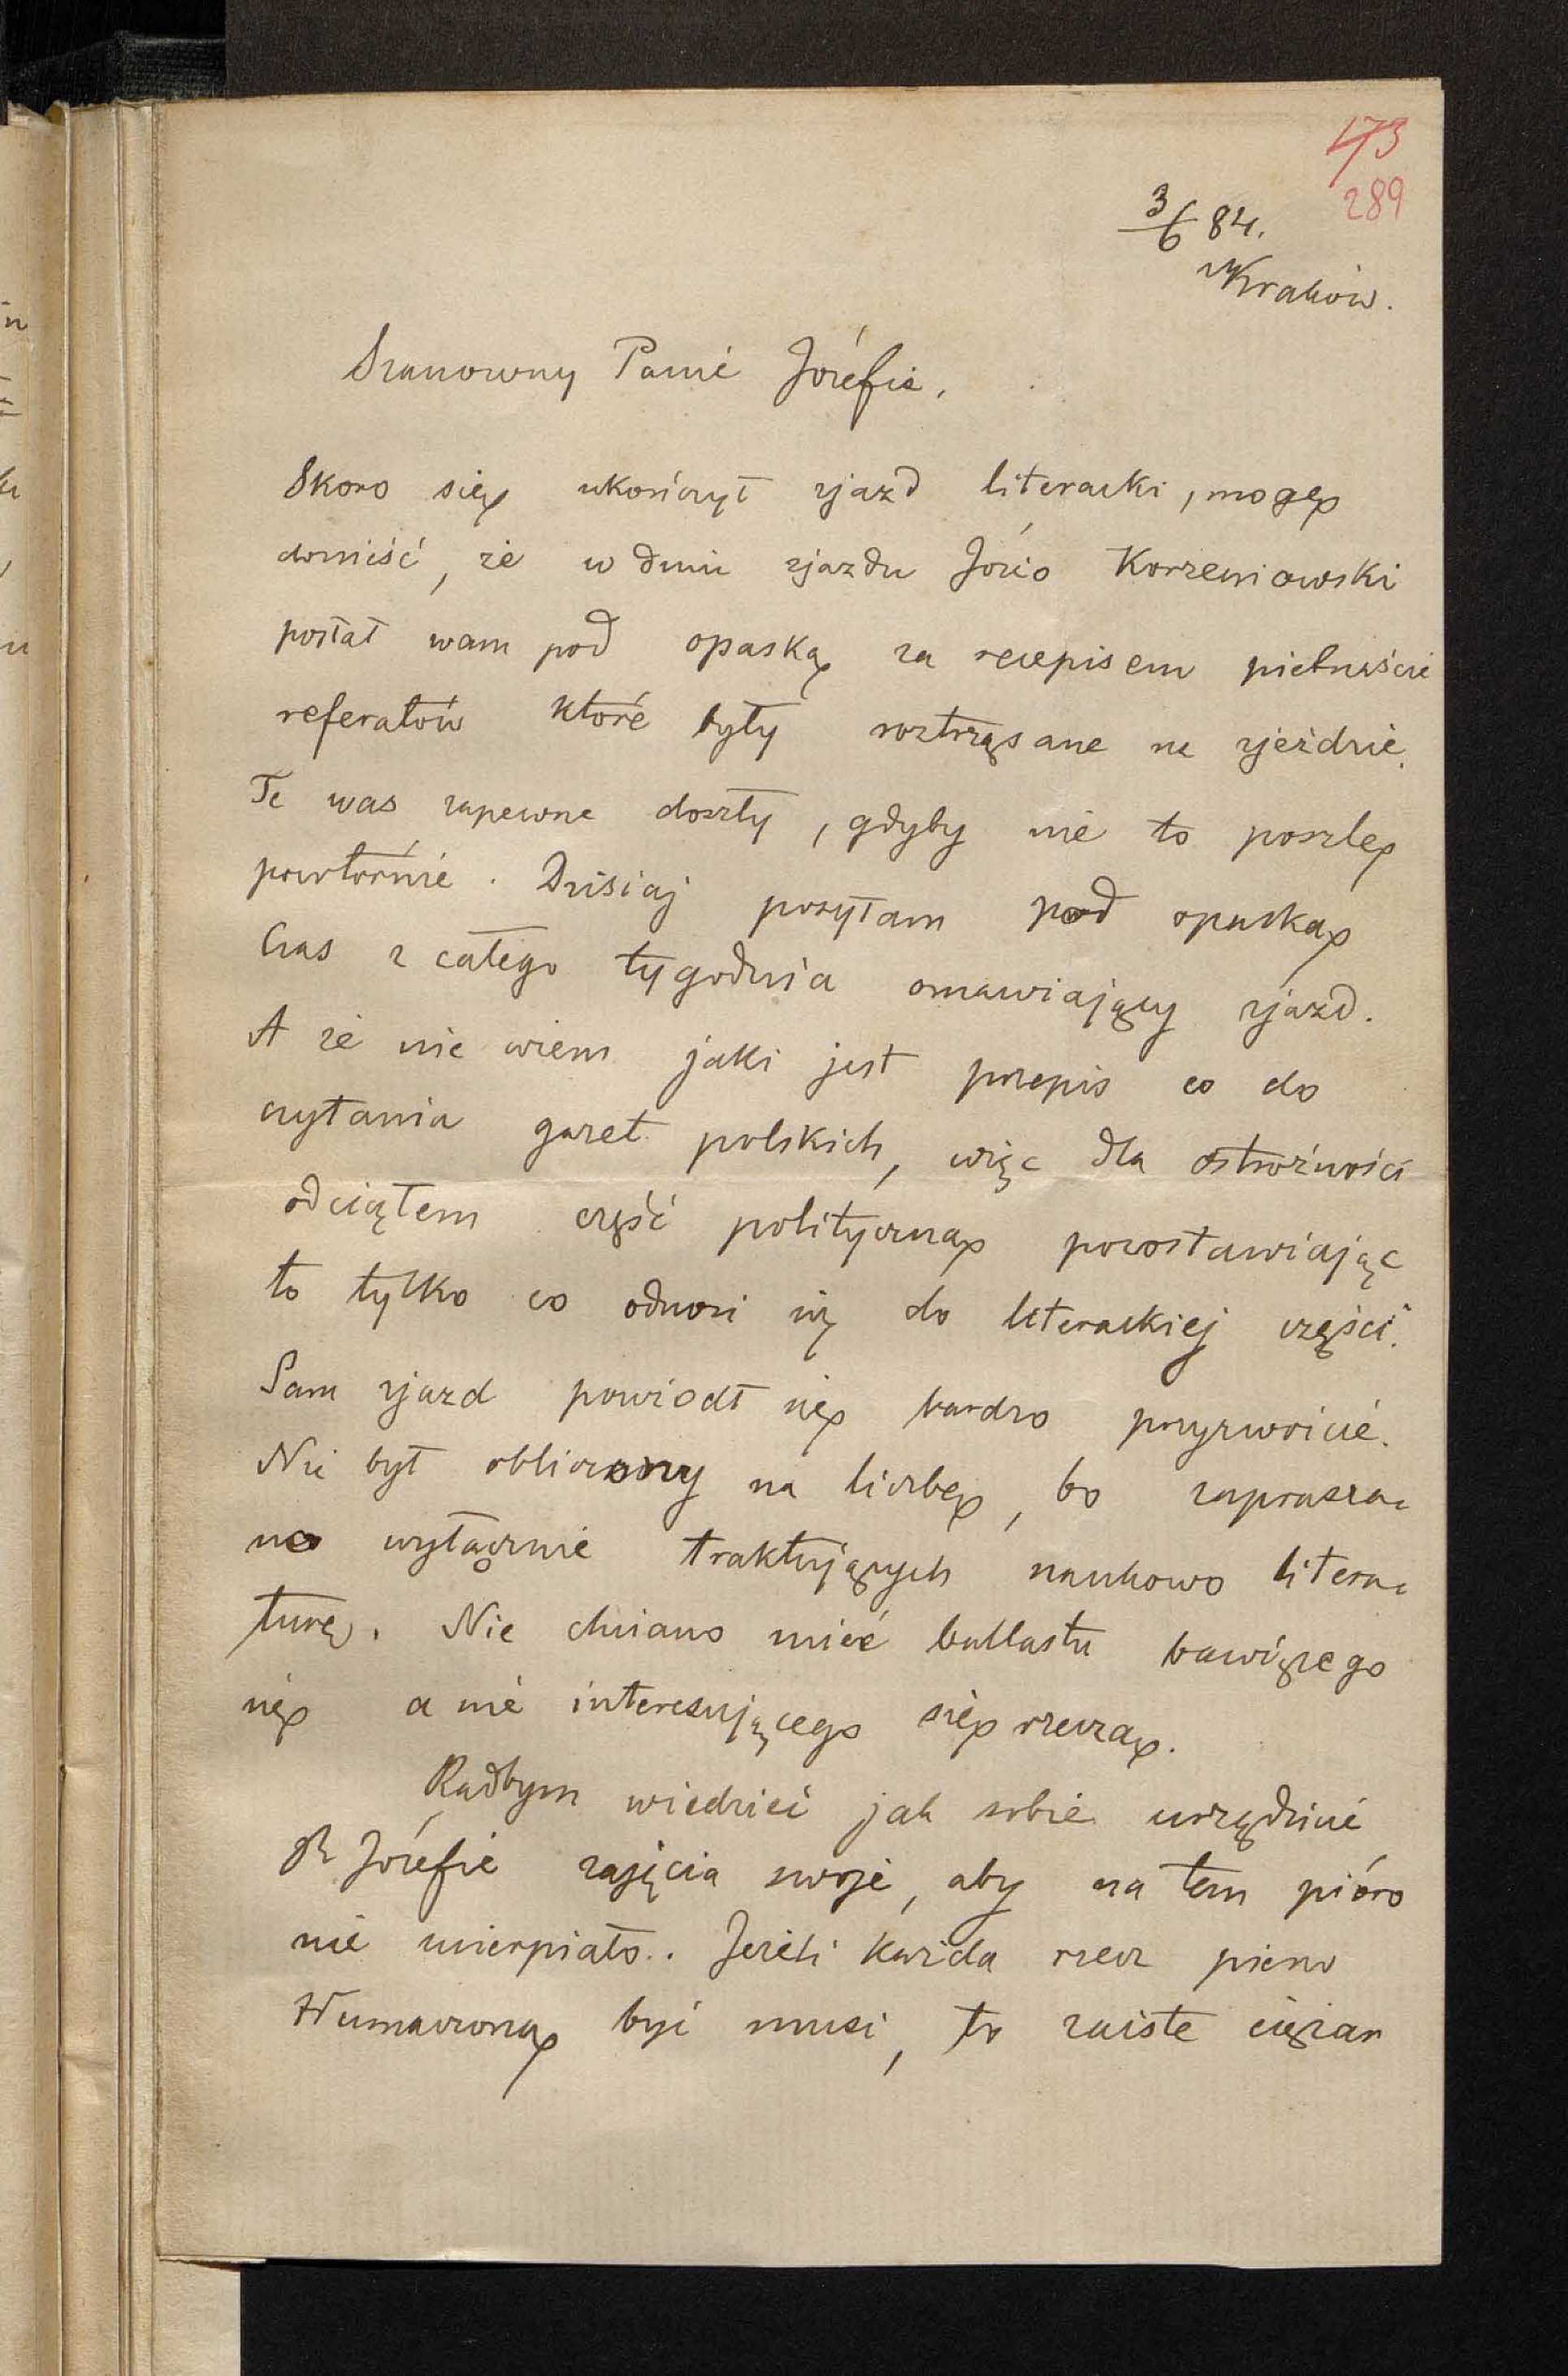 173
289
3/6 84.
Kraków.
Szanowny Panie Józefie,
Skoro się ukończył zjazd literacki, mogę
donieść, że w dniu zjazdu Józio Korzeniowski
posłał wam pod opaską za recepisem piętnaście
referatów które były roztrząsane na zjeździe.
Te was zapewne doszły, gdyby nie to poszlę
powtórnie. Dzisiaj posyłam pod opaską
Czas z całego tygodnia omawiający zjazd.
A że nie wiem jaki jest przepis co do
czytania gazet polskich, więc dla ostrożności
odciąłem część polityczną pozostawiając
to tylko co odnosi się do literackiej części.
Sam zjazd powiódł się bardzo przyzwoicie.
Nie był obliczony na liczbę, bo zaprasza-
no wyłącznie traktujących naukowo litera-
turę. Nie chciano mieć ballastu bawiącego
się a nie interesującego się rzeczą.
Radbym wiedzieć jak sobie urządzicie
P. Józefie zajęcia swoje, aby na tem pióro
nie ucierpiało.. Jeżeli każda rzecz pierw
tłumaczoną być musi, to zaiste ciężar